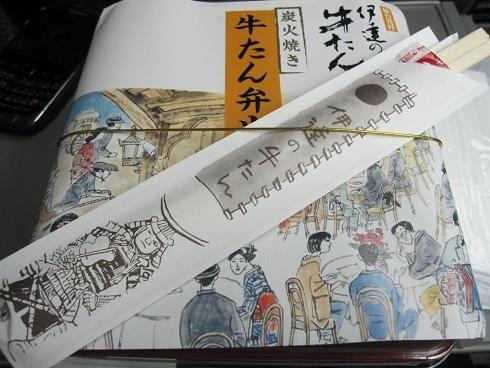 伊達の
牛たん
炭火焼き
牛たん弁当
伊達の牛たん